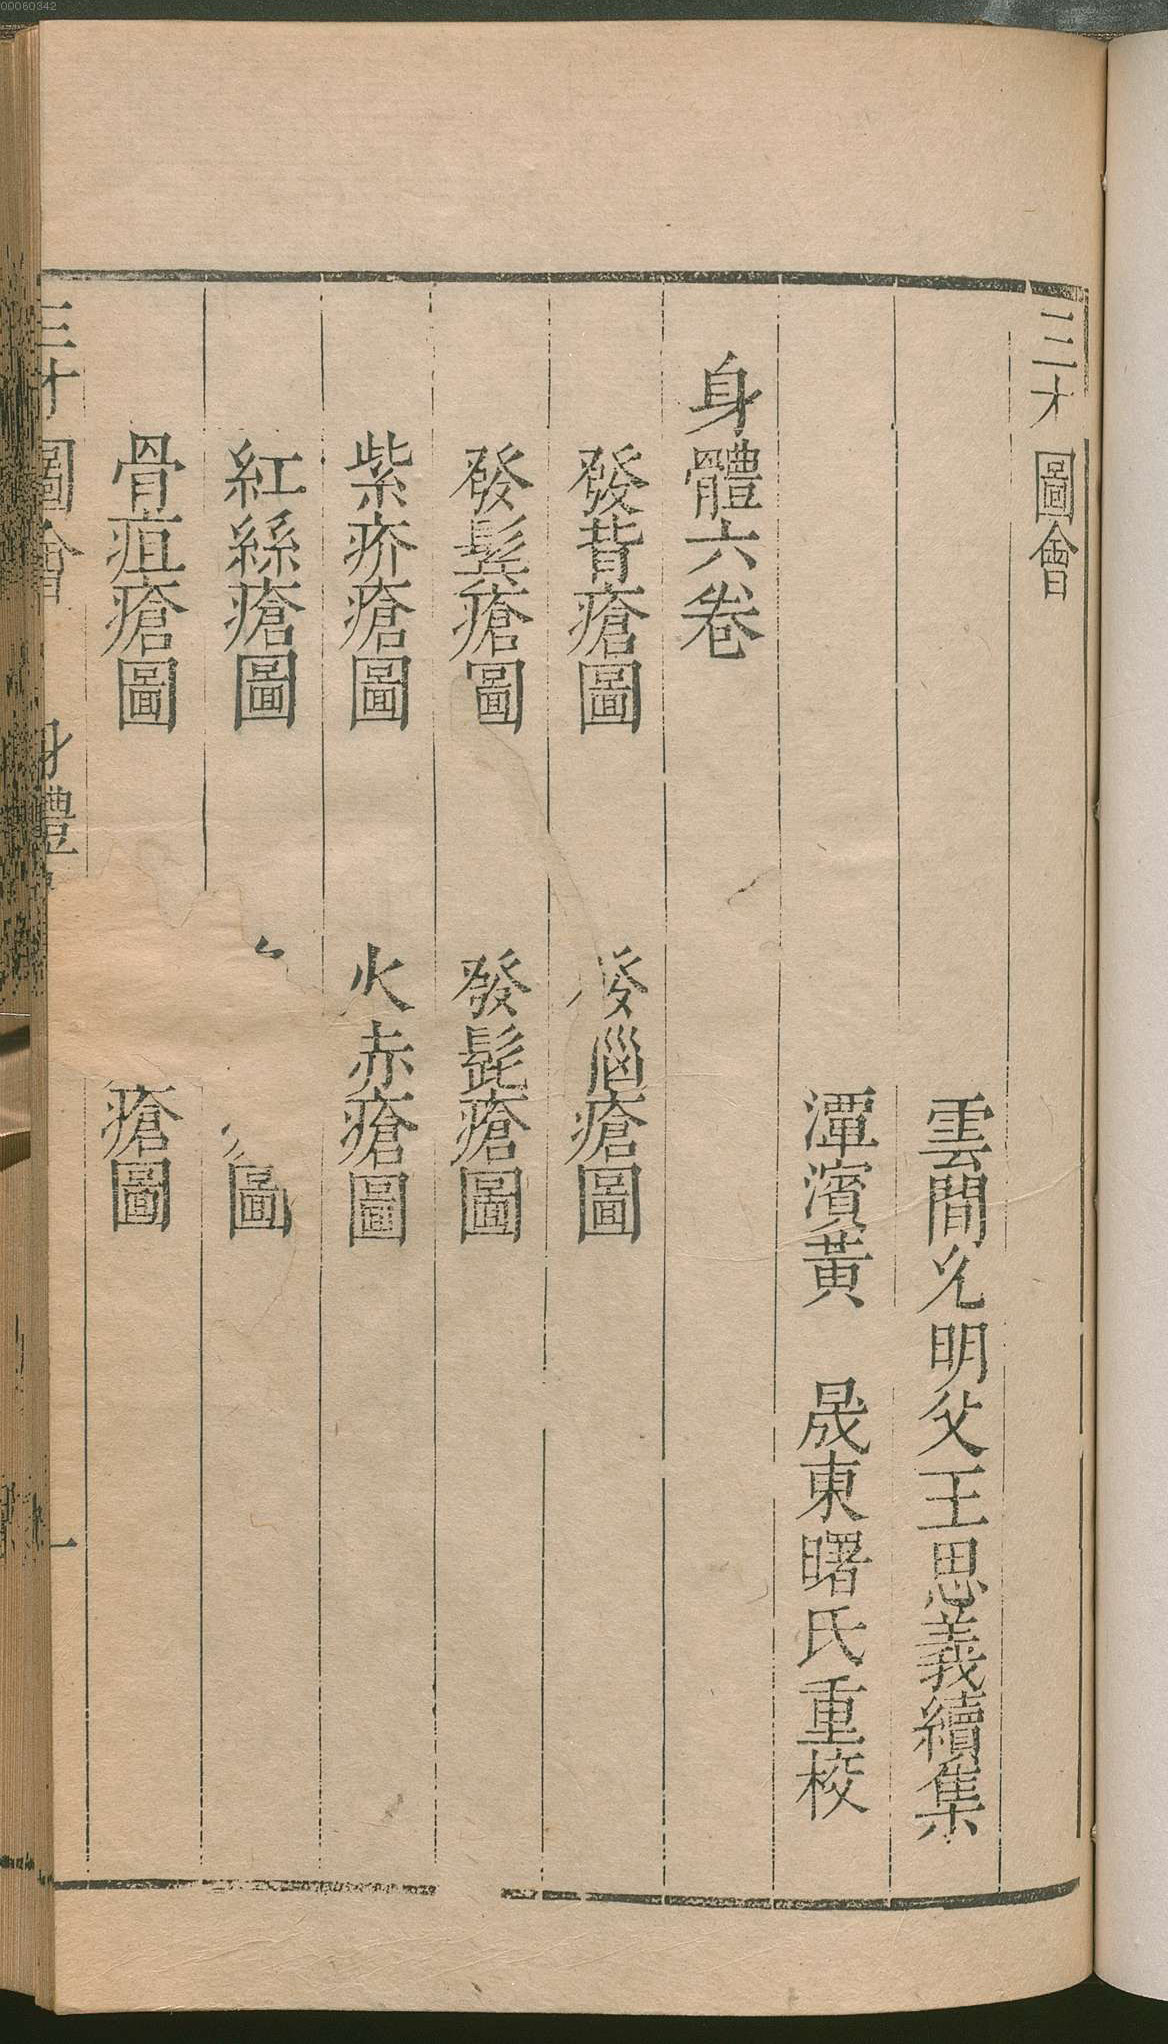 00060342
三才圖會
雲間允明父王思義續集
潭濱黃 晟東曙氏重校
身體六卷
發背瘡圖 發腦瘡圖
發鬓瘡圖 發髭瘡圖
紫疥瘡圖 火赤瘡圖
紅絲瘡圖 圖
骨疽瘡圖 瘡圖
三才圖會 身體 一